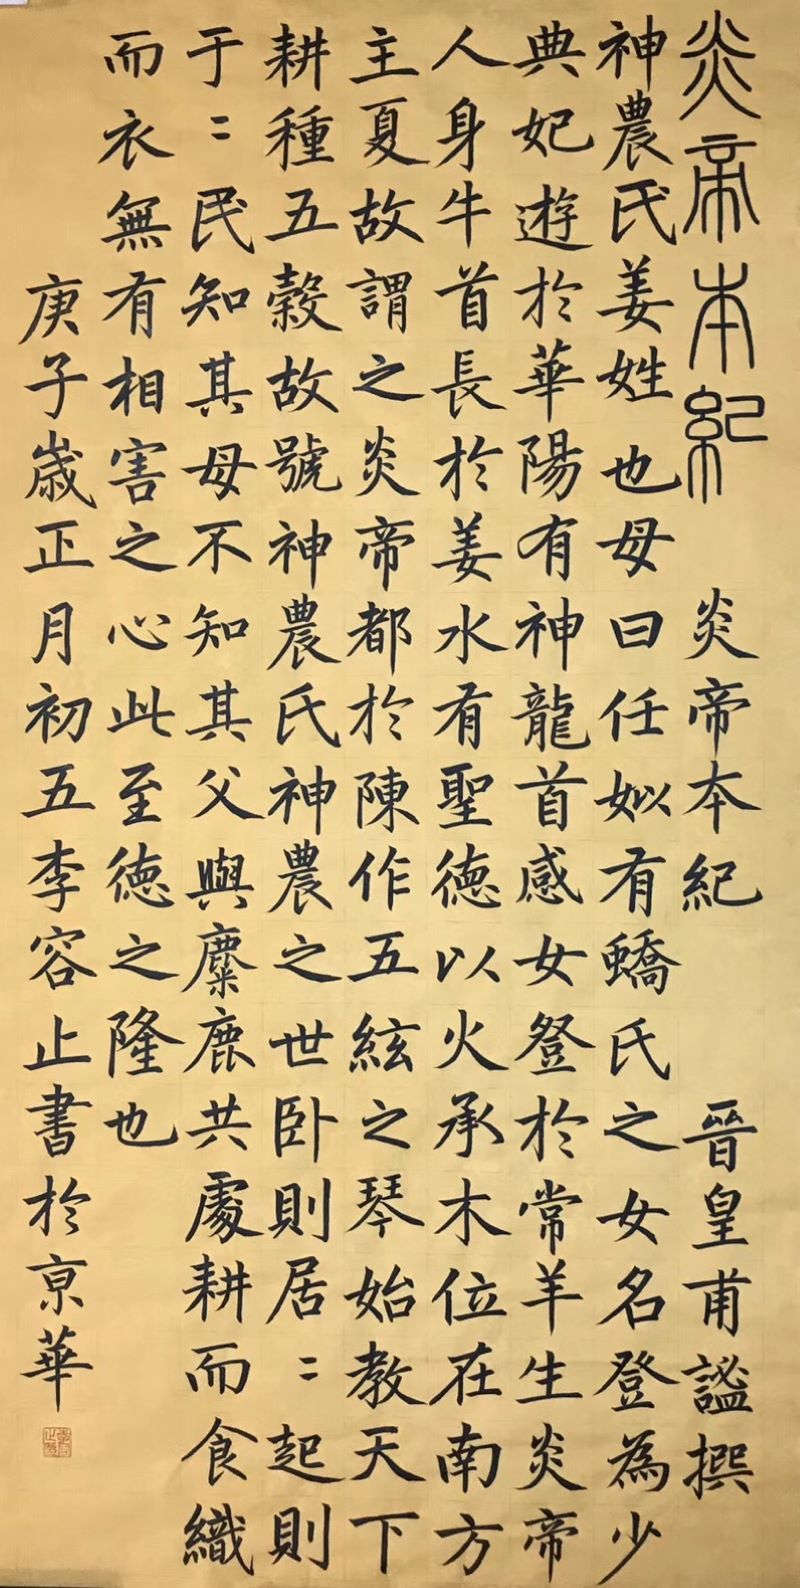 炎帝本紀 炎帝本紀 晉皇甫謐撰
神農氏姜姓也母曰任姒有蟜氏之女名登為少
典妃遊於華陽有神龍首感女登於常羊生炎帝
人身牛首長於姜水有聖德以火承木位在南方
主夏故謂之炎帝都於陳作五絃之琴始教天下
耕種五穀故號神農氏神農之世卧則居〻起則
于〻民知其母不知其父與麋鹿共處耕而食織
而衣無有相害之心此至德之隆也
庚子歲正月初五李容止書於京華